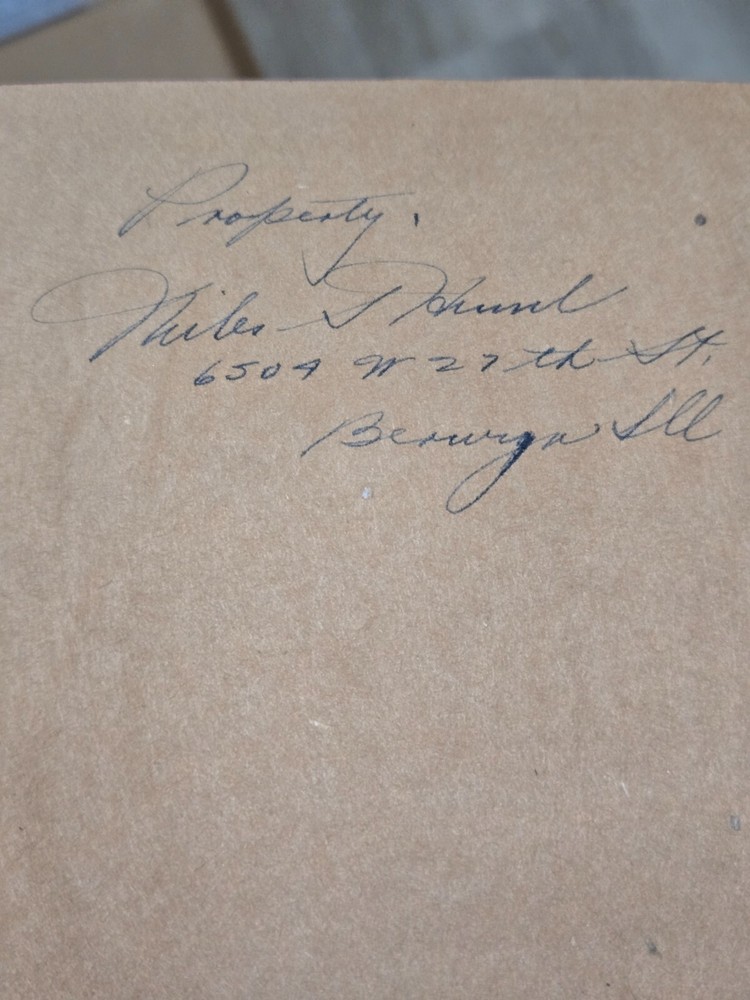 Property.
Miles S Hund
6504 W 27th St.
Berwyn Ill